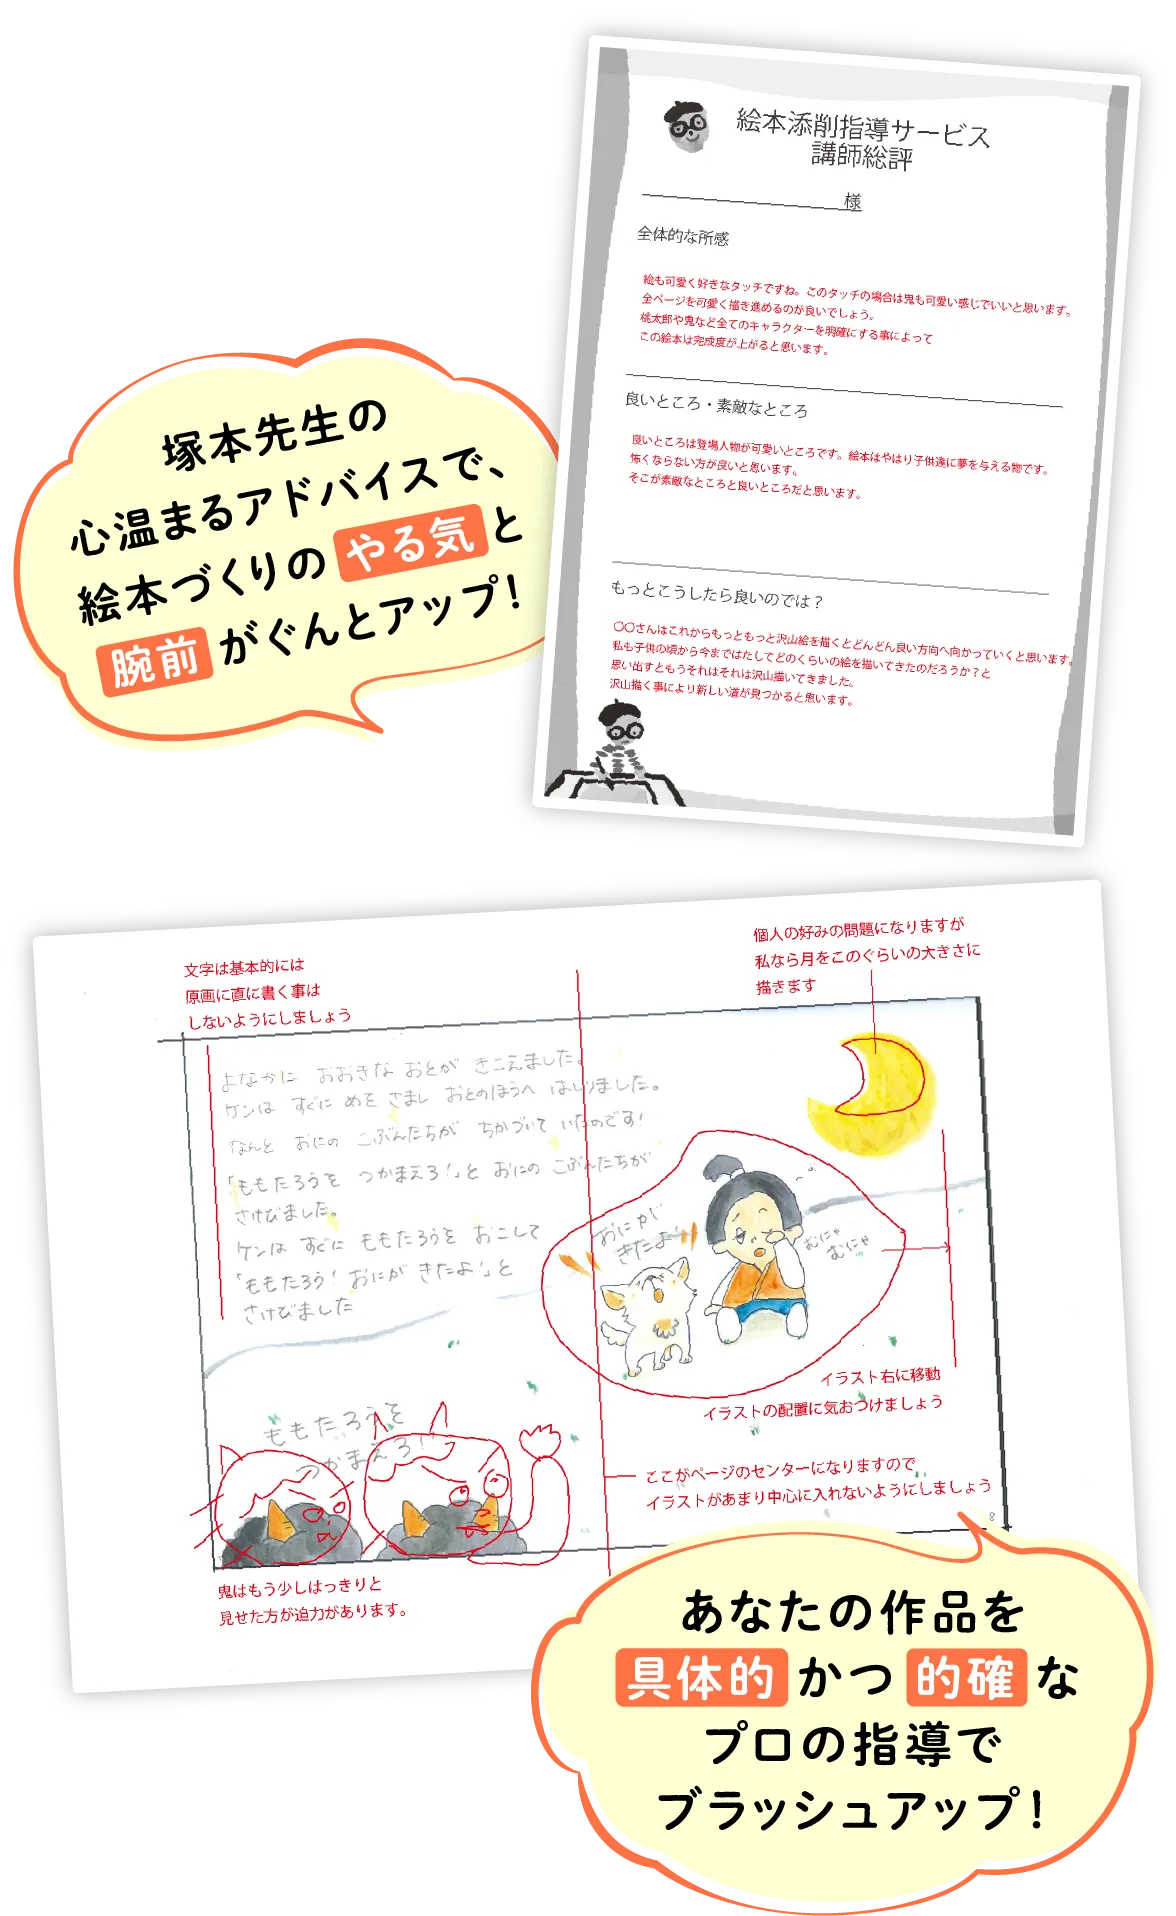 絵本添削指導サービス
講師総評
様
全体的な所感
絵も可愛く好きなタッチですね。このタッチの場合は鬼も可愛い感じでいいと思います。
全ページを可愛く描き進めるのが良いでしょう。
桃太郎や鬼など全てのキャラクターを明確にする事によって
この絵本は完成度が上がると思います。
良いところ・素敵なところ
良いところは登場人物が可愛いところです。絵本はやはり子供達に夢を与える物です。
怖くならない方が良いと思います。
そこが素敵なところと良いところだと思います。
もっとこうしたら良いのでは？
〇〇さんはこれからもっともっと沢山絵を描くとどんどん良い方向へ向かっていくと思います。
私も子供の頃から今まではたしてどのくらいの絵を描いてきたのだろうか？と
思い出すともうそれはそれは沢山描いてきました。
沢山描く事により新しい道が見つかると思います。
塚本先生の
心温まるアドバイスで、
絵本づくりのやる気と
腕前がぐんとアップ！
文字は基本的には
原画に直に書く事は
しないようにしましょう
個人の好みの問題になりますが
私なら月をこのぐらいの大きさに
描きます
よなかに おおきな おとが きこえました。
ケンは すぐに めを さまし おとのほうへ はしりました。
なんと おにの こぶんたちが ちかづいて いたのです！
「ももたろうを つかまえろ！」と おにの こぶんたちが
さけびました。
ケンは すぐに ももたろうを おこして
「ももたろう！ おにが きたよ！」と
さけびました
おにが
きたよ！
むにゃ
むにゃ
イラスト右に移動
イラストの配置に気おつけましょう
ももたろうを
つかまえろ！！
ここがページのセンターになりますので
イラストがあまり中心に入れないようにしましょう
8
鬼はもう少しはっきりと
見せた方が迫力があります。
あなたの作品を
具体的かつ的確な
プロの指導で
ブラッシュアップ！